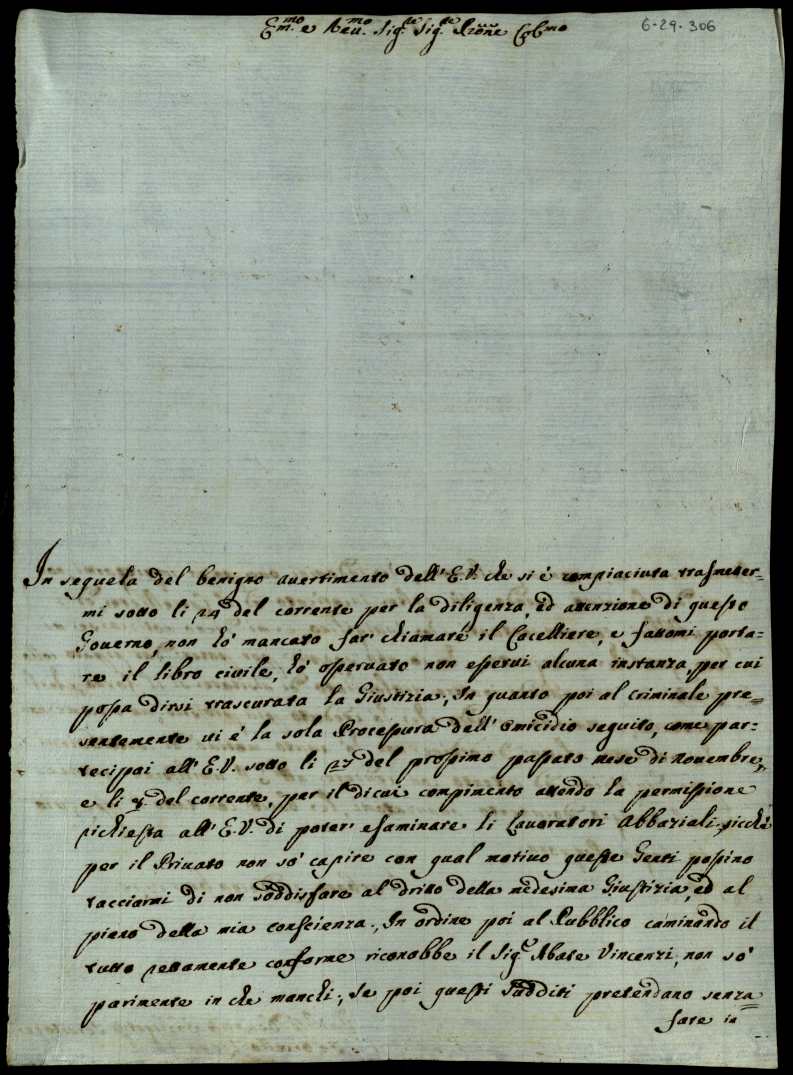 Em.mo e Reu.mo Sig.re Sig.re Pròne Col.mo
6-29-306
In sequela del benigno auertimento dell' E.V. che si è compiaciuta trasmeter=
mi sotto li 24 del corrente per la diligenza, ed attenzione di questo
Gouerno, non hò mancato far' chiamare il Cacelliere, e fattomi porta=
re il libro ciuile, hò osseruato non esserui alcuna instanza, per cui
possa dirsi trascurata la Giustizia; In quanto poi al criminale pre=
sentemente ui è la sola Processura dell' Omicidio seguito, come par=
tecipai all' E.V. sotto li 27 del prossimo passato mese di nouembre,
e li del corrente, per il di cui compimento attendo la permissione
richiesta all' E.V. di poter' esaminare li Lauoratori Abbaziali, sicchè
per il Priuato non sò capire con qual motiuo queste Genti possino
tacciarmi di non soddisfare al dritto della medesima Giustizia, ed al
pieno della mia conscienza; In ordine poi al Pubblico caminando il
tutto rettamente conforme riconobbe il Sig.r Abate Vincenzi, non sò
parimente in che manchi; Se poi questi Sudditi pretendano senza
fare in